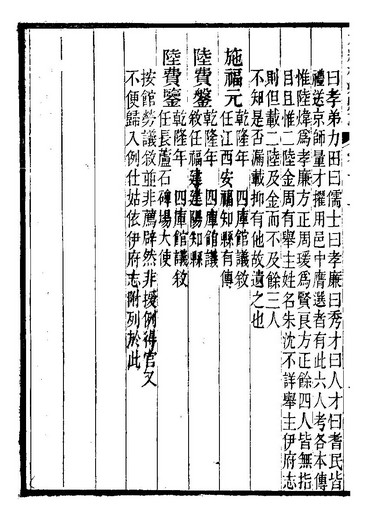 曰孝弟力田曰儒士曰孝廉曰秀才曰人才曰耆民皆
禮送京師量才擢用邑中膺選者有此六人考各本傳
惟陸煒爲孝廉方正周瑗爲賢良方正餘四人皆無指
目且惟二陸金周有舉主姓名朱沈不詳舉主伊府志
則但載二陸及金而不及餘三人
不知是否漏載抑有他故遺之也
施福元
乾隆年 四庫館議敘
任江西安福知縣有傳
陸費鏊
乾隆年 四庫館議
敘任福建建陽知縣
陸費鑒
乾隆年 四庫館議敘
任長蘆石碑場大使
按館勞議敘並非薦辟然非援例得官又
不便歸入例仕姑依伊府志附列於此